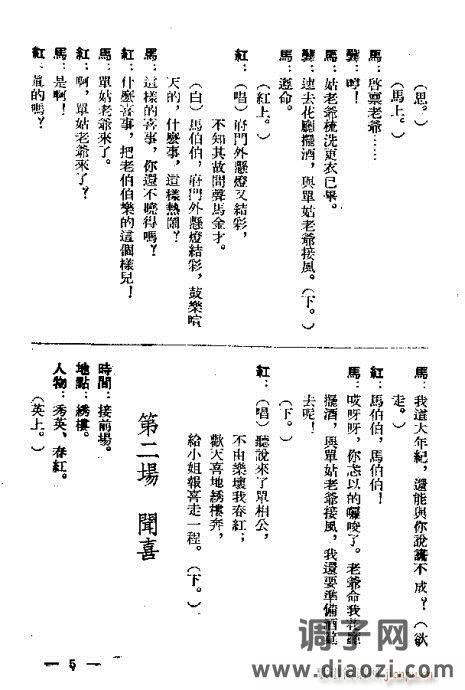 (思。)
(馬上。)
馬：啓禀老爺……
龔：哼！
馬：姑老爺梳洗更衣已畢。
龔：速去花廳擺酒，與單姑老爺接風。(下。)
馬：遵命。
(紅上。)
紅：(唱)府門外懸燈又結彩，
不知其故問聲馬金才。
(白)馬伯伯，府門外懸燈結彩，鼓樂喧
天的，什麼事，這樣熱鬧？
馬：這樣的喜事，你還不曉得嗎？
紅：什麼喜事，把老伯伯樂的這個樣兒！
馬：單姑老爺來了。
紅：啊，單姑老爺來了？
馬：是啊！
紅：眞的嗎？
馬：我這大年紀，還能與你說謊不成？(欲
走。)
紅：馬伯伯，馬伯伯！
馬：哎呀呀，你忒以的囉唆了。老爺命我花廳
擺酒，與單姑老爺接風，我還要準備酒筵
去呢！
(下。)
紅：(唱)聽說來了單相公，
不由樂壞我春紅；
歡天喜地綉樓奔，
給小姐報喜走一程。(下。)
第二場　聞喜
時間：接前場。
地點：綉樓。
人物：秀英、春紅。
(英上。)
— 5 —
调子网
www.diaozi.com